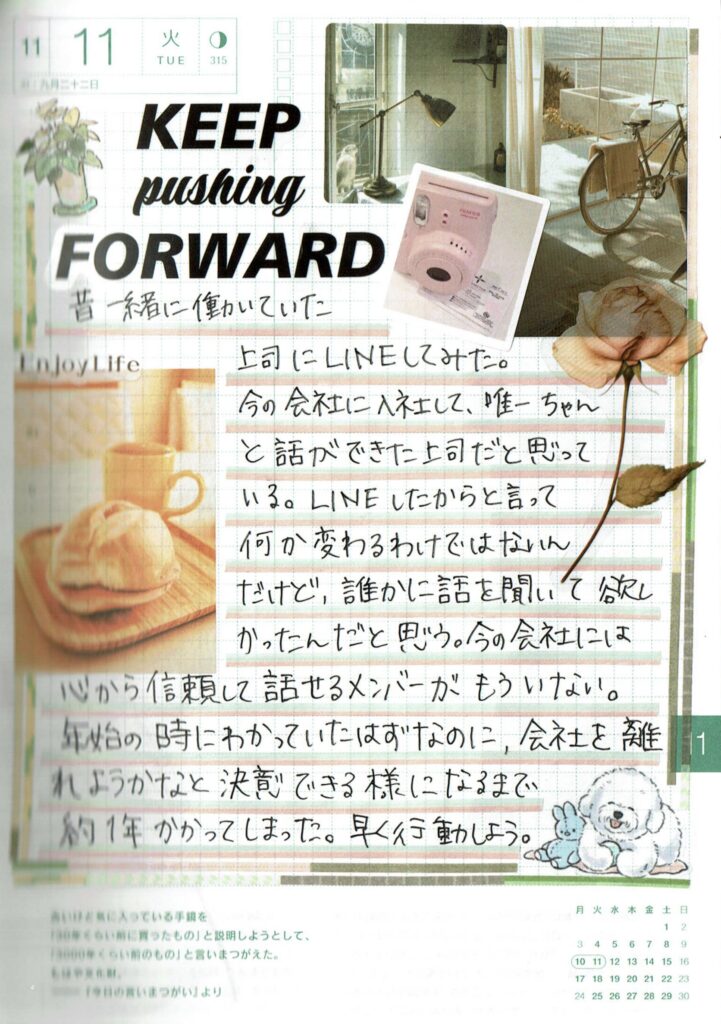 11
11
火
TUE
315
旧 九月二十二日
KEEP
pushing
FORWARD
昔一緒に働いていた
上司にLINEしてみた。
Enjoy Life
今の会社に入社して、唯一ちゃん
と話ができた上司だと思って
いる。LINEしたからと言って
何か変わるわけではないん
だけど、誰かに話を聞いて欲し
かったんだと思う。今の会社には
心から信頼して話せるメンバーがもういない。
年始の時にわかっていたはずなのに、会社を離
れようかなと決意できる様になるまで
約1年かかってしまった。早く行動しよう。
11
古いけど気に入っている手鏡を
「30年くらい前に買ったもの」と説明しようとして、
「3000年くらい前のもの」と言いまつがえた。
もはや文化財。
『今日の言いまつがい』より
月 火 水 木 金 土 日
1 2
3 4 5 6 7 8 9
10 11 12 13 14 15 16
17 18 19 20 21 22 23
24 25 26 27 28 29 30